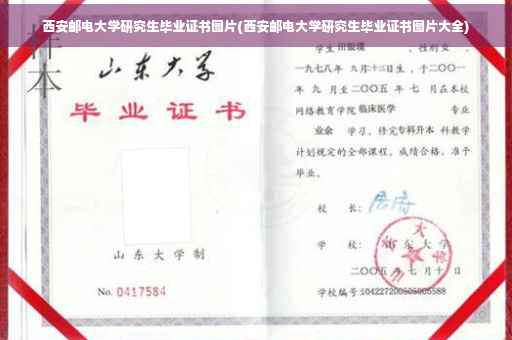 西安邮电大学研究生毕业证书图片(西安邮电大学研究生毕业证书图片大全)
样本
山东大学
毕业证书
山东大学制
No. 0417584
学生
性别女，
一九七八年九月十三日生，于二〇〇一
年九月至二〇〇五年七月在本校
网络教育学院临床医学专业
业余学习，修完专科升本科教学
计划规定的全部课程，成绩合格，准予
毕业。
校长：
学校：山东大学
二〇〇五年七月十日
学校编号:104227200505005588